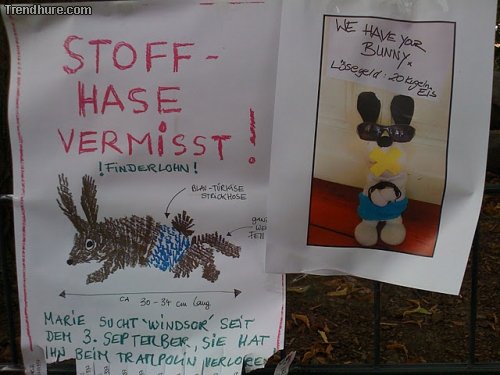 Trendhure.com
STOFF-
HASE
VERMISST!
!FINDERLOHN!
BLAU-TÜRKISE
STRICKHOSE
CA 30-34 cm lang
MARIE SUCHT 'WINDSOR' SEIT
DEM 3. SEPTERBER, SIE HAT
IHN BEIM TRAMPOLIN VERLOREN
WE HAVE YOUR
BUNNY.
Lösegeld: 20 Kugeln
EIS